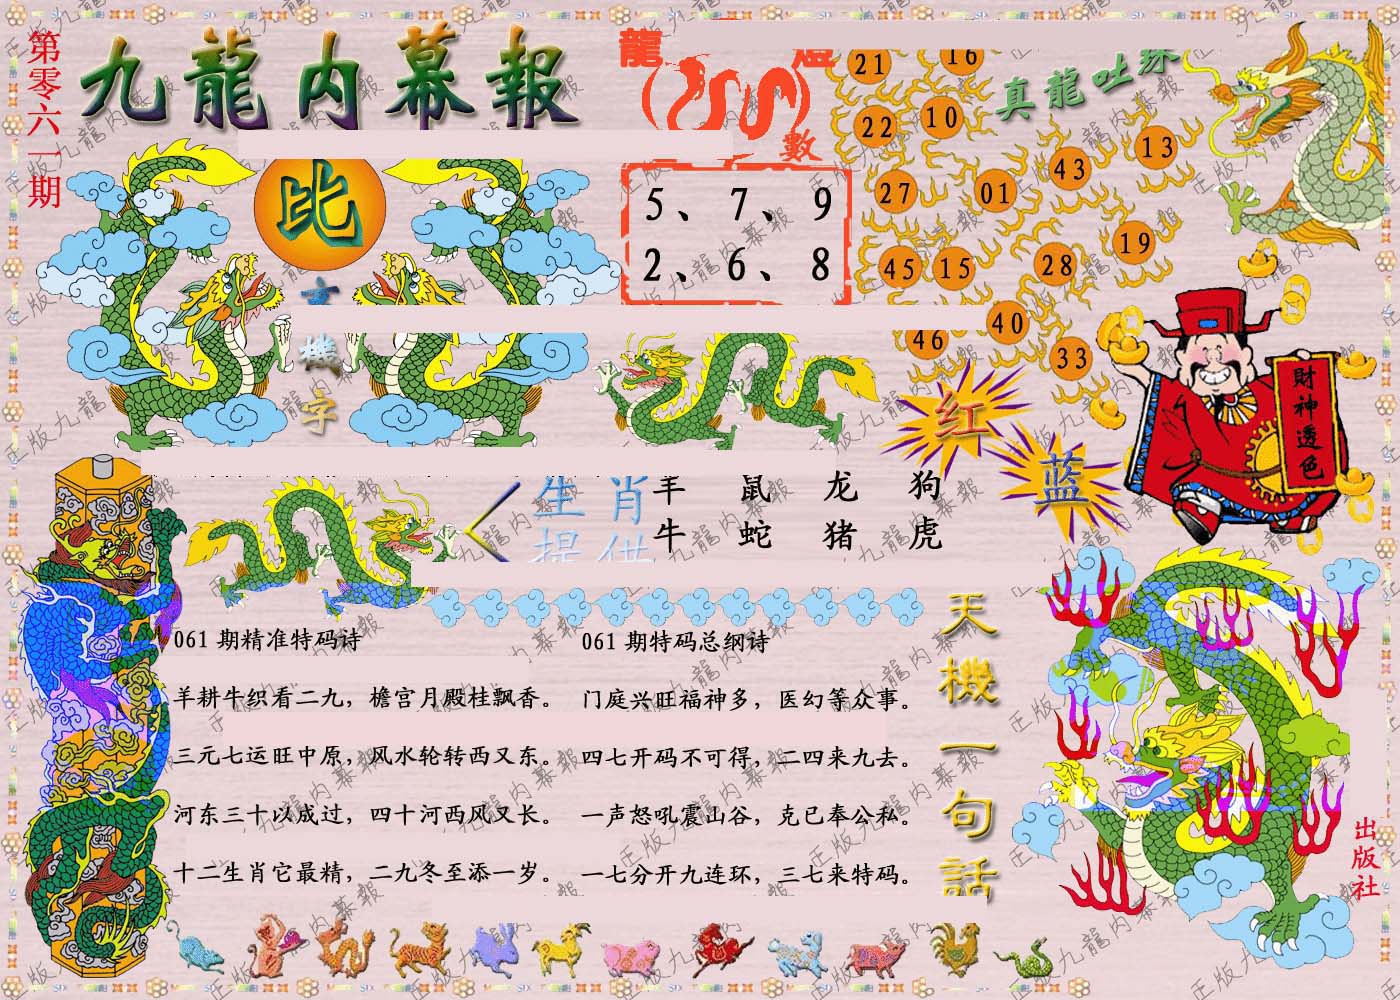 第零六一期
九龍内幕報
比
玄機字
龍燈數
5、7、9
2、6、8
真龍吐珠
21 16
22 10
43 13
27 01
19
45 15 28
46 40
33
红
蓝
財神透色
生肖提供
羊 鼠 龙 狗
牛 蛇 猪 虎
061期精准特码诗
羊耕牛织看二九，檐宫月殿桂飘香。
三元七运旺中原，风水轮转西又东。
河东三十以成过，四十河西风又长。
十二生肖它最精，二九冬至添一岁。
061期特码总纲诗
门庭兴旺福神多，医幻等众事。
四七开码不可得，二四来九去。
一声怒吼震山谷，克已奉公私。
一七分开九连环，三七来特码。
天機一句話
出版社
正版九龍内幕報